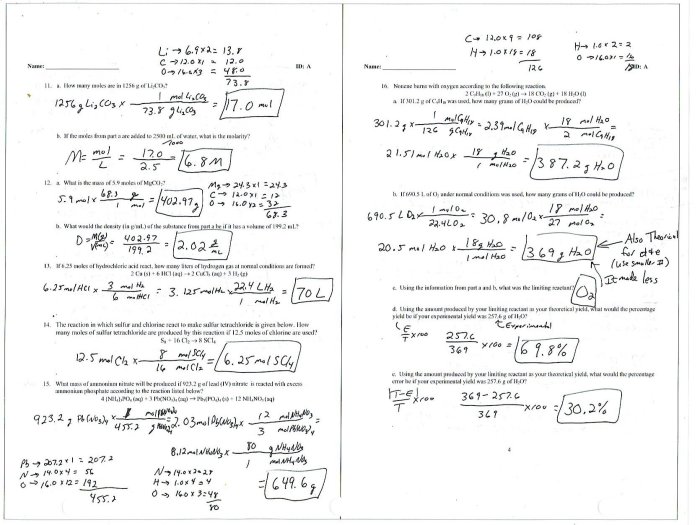 Li → 6.9x2 = 13.8
C → 12.0x1 = 12.0
O → 16.0x3 = 48.0
73.8
Name: ID: A
11. a. How many moles are in 1256 g of Li2CO3?
1256 g Li2CO3 x 1 mol Li2CO3 / 73.8 g Li2CO3 = 17.0 mol
b. If the moles from part a are added to 2500 mL of water, what is the molarity?
M = mol / L = 17.0 / 2.5 = 6.8 M
12. a. What is the mass of 5.9 moles of MgCO3?
Mg → 24.3x1 = 24.3
C → 12.0x1 = 12
O → 16.0x3 = 32
68.3
5.9 mol x 68.3 g / 1 mol = 402.97 g
b. What would the density (in g/mL) of the substance from part a be if it has a volume of 199.2 mL?
D = M(g) / V(mL) = 402.97 / 199.2 = 2.02 g/mL
13. If 6.25 moles of hydrochloric acid react, how many liters of hydrogen gas at normal conditions are formed?
6.25 mol HCl x 3 mol H2 / 6 mol HCl = 3.125 mol H2 x 22.4 L H2 / 1 mol H2 = 70 L
14. The reaction in which sulfur and chlorine react to make sulfur tetrachloride is given below. How
many moles of sulfur tetrachloride are produced by this reaction if 12.5 moles of chlorine are used?
S8 + 16 Cl2 → 8 SCl4
12.5 mol Cl2 x 8 mol SCl4 / 16 mol Cl2 = 6.25 mol SCl4
15. What mass of ammonium nitrate will be produced if 923.2 g of lead (IV) nitrate is reacted with excess
ammonium phosphate according to the reaction listed below?
923.2 g Pb(NO3)4 x 1 / 455.2 = 2.03 mol Pb(NO3)4 x 12 mol NH4NO3 / 3 mol Pb(NO3)4 =
8.12 mol NH4NO3 x 80 g NH4NO3 / 1 mol NH4NO3
= 649.6 g
Pb → 207.2x1 = 207.2
N → 14.0x4 = 56
O → 16.0x12 = 192
455.2
N → 14.0x2 = 28
H → 1.0x4 = 4
O → 16.0x3 = 48
80
C → 12.0x9 = 108
H → 1.0x18 = 18
126
H → 1.0x2 = 2
O → 16.0x1 = 16
Name: ID: A
16. Nonene burns with oxygen according to the following reaction.
2 C9H18 (l) + 27 O2 (g) → 18 CO2 (g) + 18 H2O (l)
a. If 301.2 g of C9H18 was used, how many grams of H2O could be produced?
301.2 g x 1 mol C9H18 / 126 g C9H18 = 2.39 mol C9H18 x 18 mol H2O / 2 mol C9H18
21.51 mol H2O x 18 g H2O / 1 mol H2O = 387.2 g H2O
b. If 690.5 L of O2 under normal conditions was used, how many grams of H2O could be produced?
690.5 L O2 x 1 mol O2 / 22.4 L O2 = 30.8 mol O2 x 18 mol H2O / 27 mol O2 =
20.5 mol H2O x 18 g H2O / 1 mol H2O = 369 g H2O
Also Theorical
for d + e
(use smaller #)
It make less
c. Using the information from part a and b, what was the limiting reactant?
O2
d. Using the amount produced by your limiting reactant as your theoretical yield, what would the percentage
yield be if your experimental yield was 257.6 g of H2O?
Experimental
E / T x 100 257.6 / 369 x 100 = 69.8%
e. Using the amount produced by your limiting reactant as your theoretical yield, what would the percentage
error be if your experimental yield was 257.6 g of H2O?
|T-E| / T x 100 369-257.6 / 369 x 100 = 30.2%
4